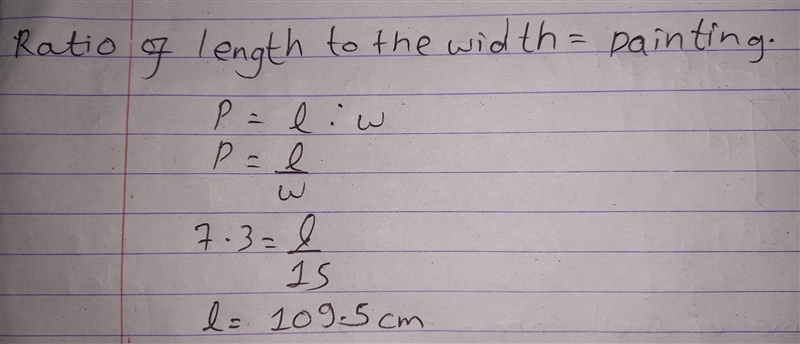 Ratio of length to the width = painting.
P = l : w
P = l/w
7.3 = l/15
l = 109.5 cm